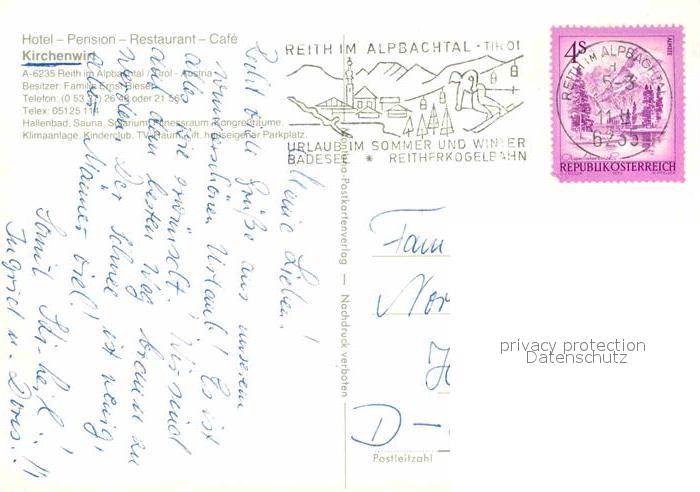 Hotel – Pension – Restaurant – Café
Kirchenwirt
A-6235 Reith im Alpbachtal / Tirol - Austria
Besitzer: Familie Ernst Bieser
Telefon: (0 53 37) 26 48 oder 21 56
Telex: 05125 11
Hallenbad, Sauna, Solarium, Fitnessraum, Kongreßräume,
Klimaanlage, Kinderclub, TV-Raum, Lift, hauseigener Parkplatz.
REITH IM ALPBACHTAL · TIROL
URLAUB IM SOMMER UND WINTER
BADESEE * REITHERKOGELBAHN
REITH IM ALPBACHTAL
6235
4 S
REPUBLIK ÖSTERREICH
Meine Lieben!
Recht viele Grüße aus unserem
wunderschönen Urlaub! Es ist
alles wie erwünscht. Wir sind
auf dem besten Weg braun zu
werden. Der Schnee ist wenig,
Männer viel!
Somit Ski-heil!!
Ingrid u. Doris.
Postkartenverlag — Nachdruck verboten
Fam
Nor
D-
Postleitzahl
privacy protection
Datenschutz